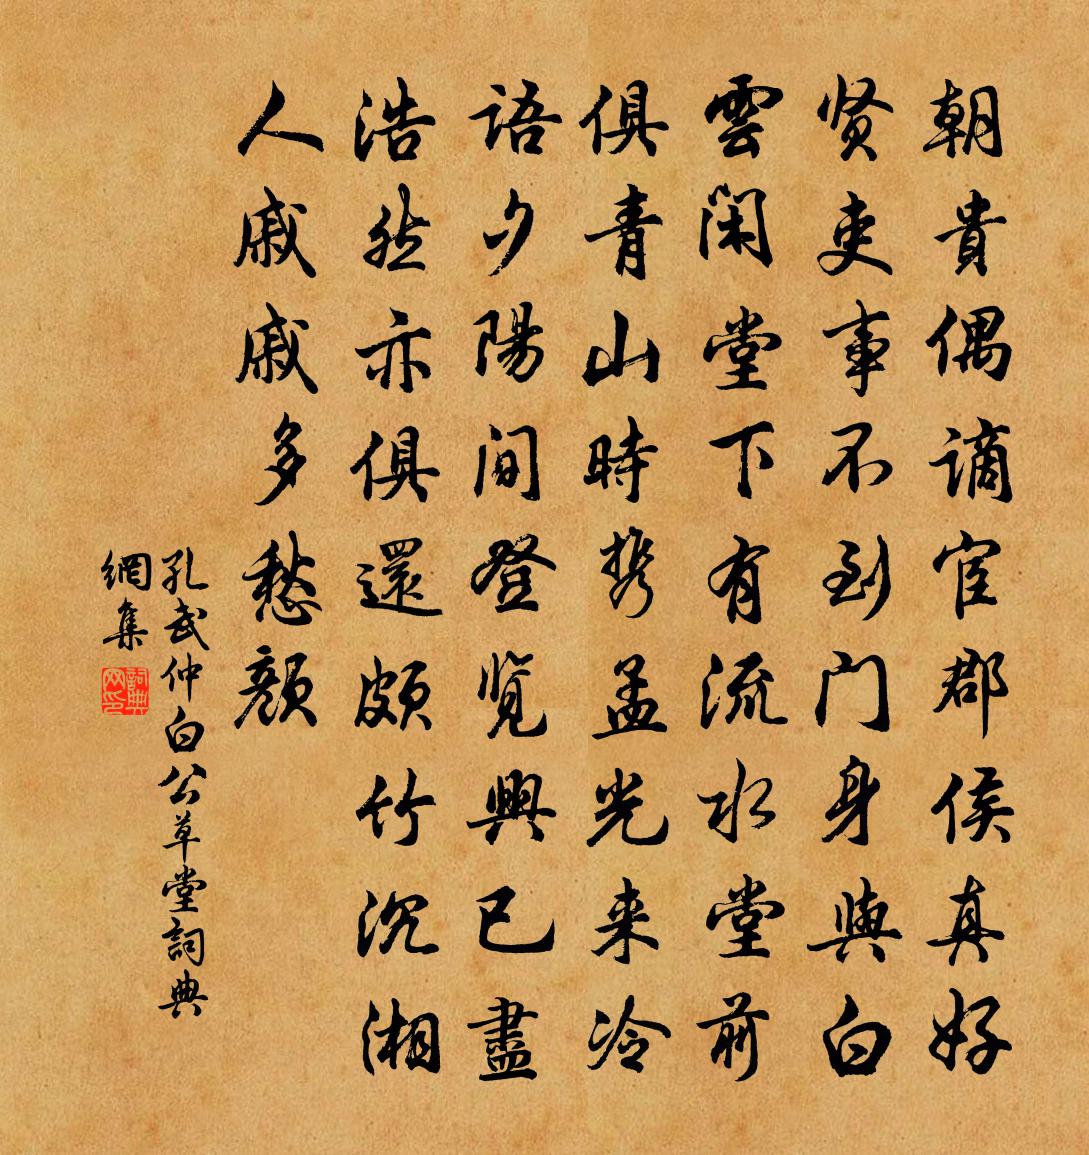 朝貴偶謫宦郡侯真好
贤吏事不到门身與白
雲闲堂下有流水堂前
俱青山時携孟光来冷
語夕陽间登览興已盡
浩然亦俱還頗竹沉湘
人戚戚多愁顔
孔武仲白公草堂詞典
網集
詞典网印